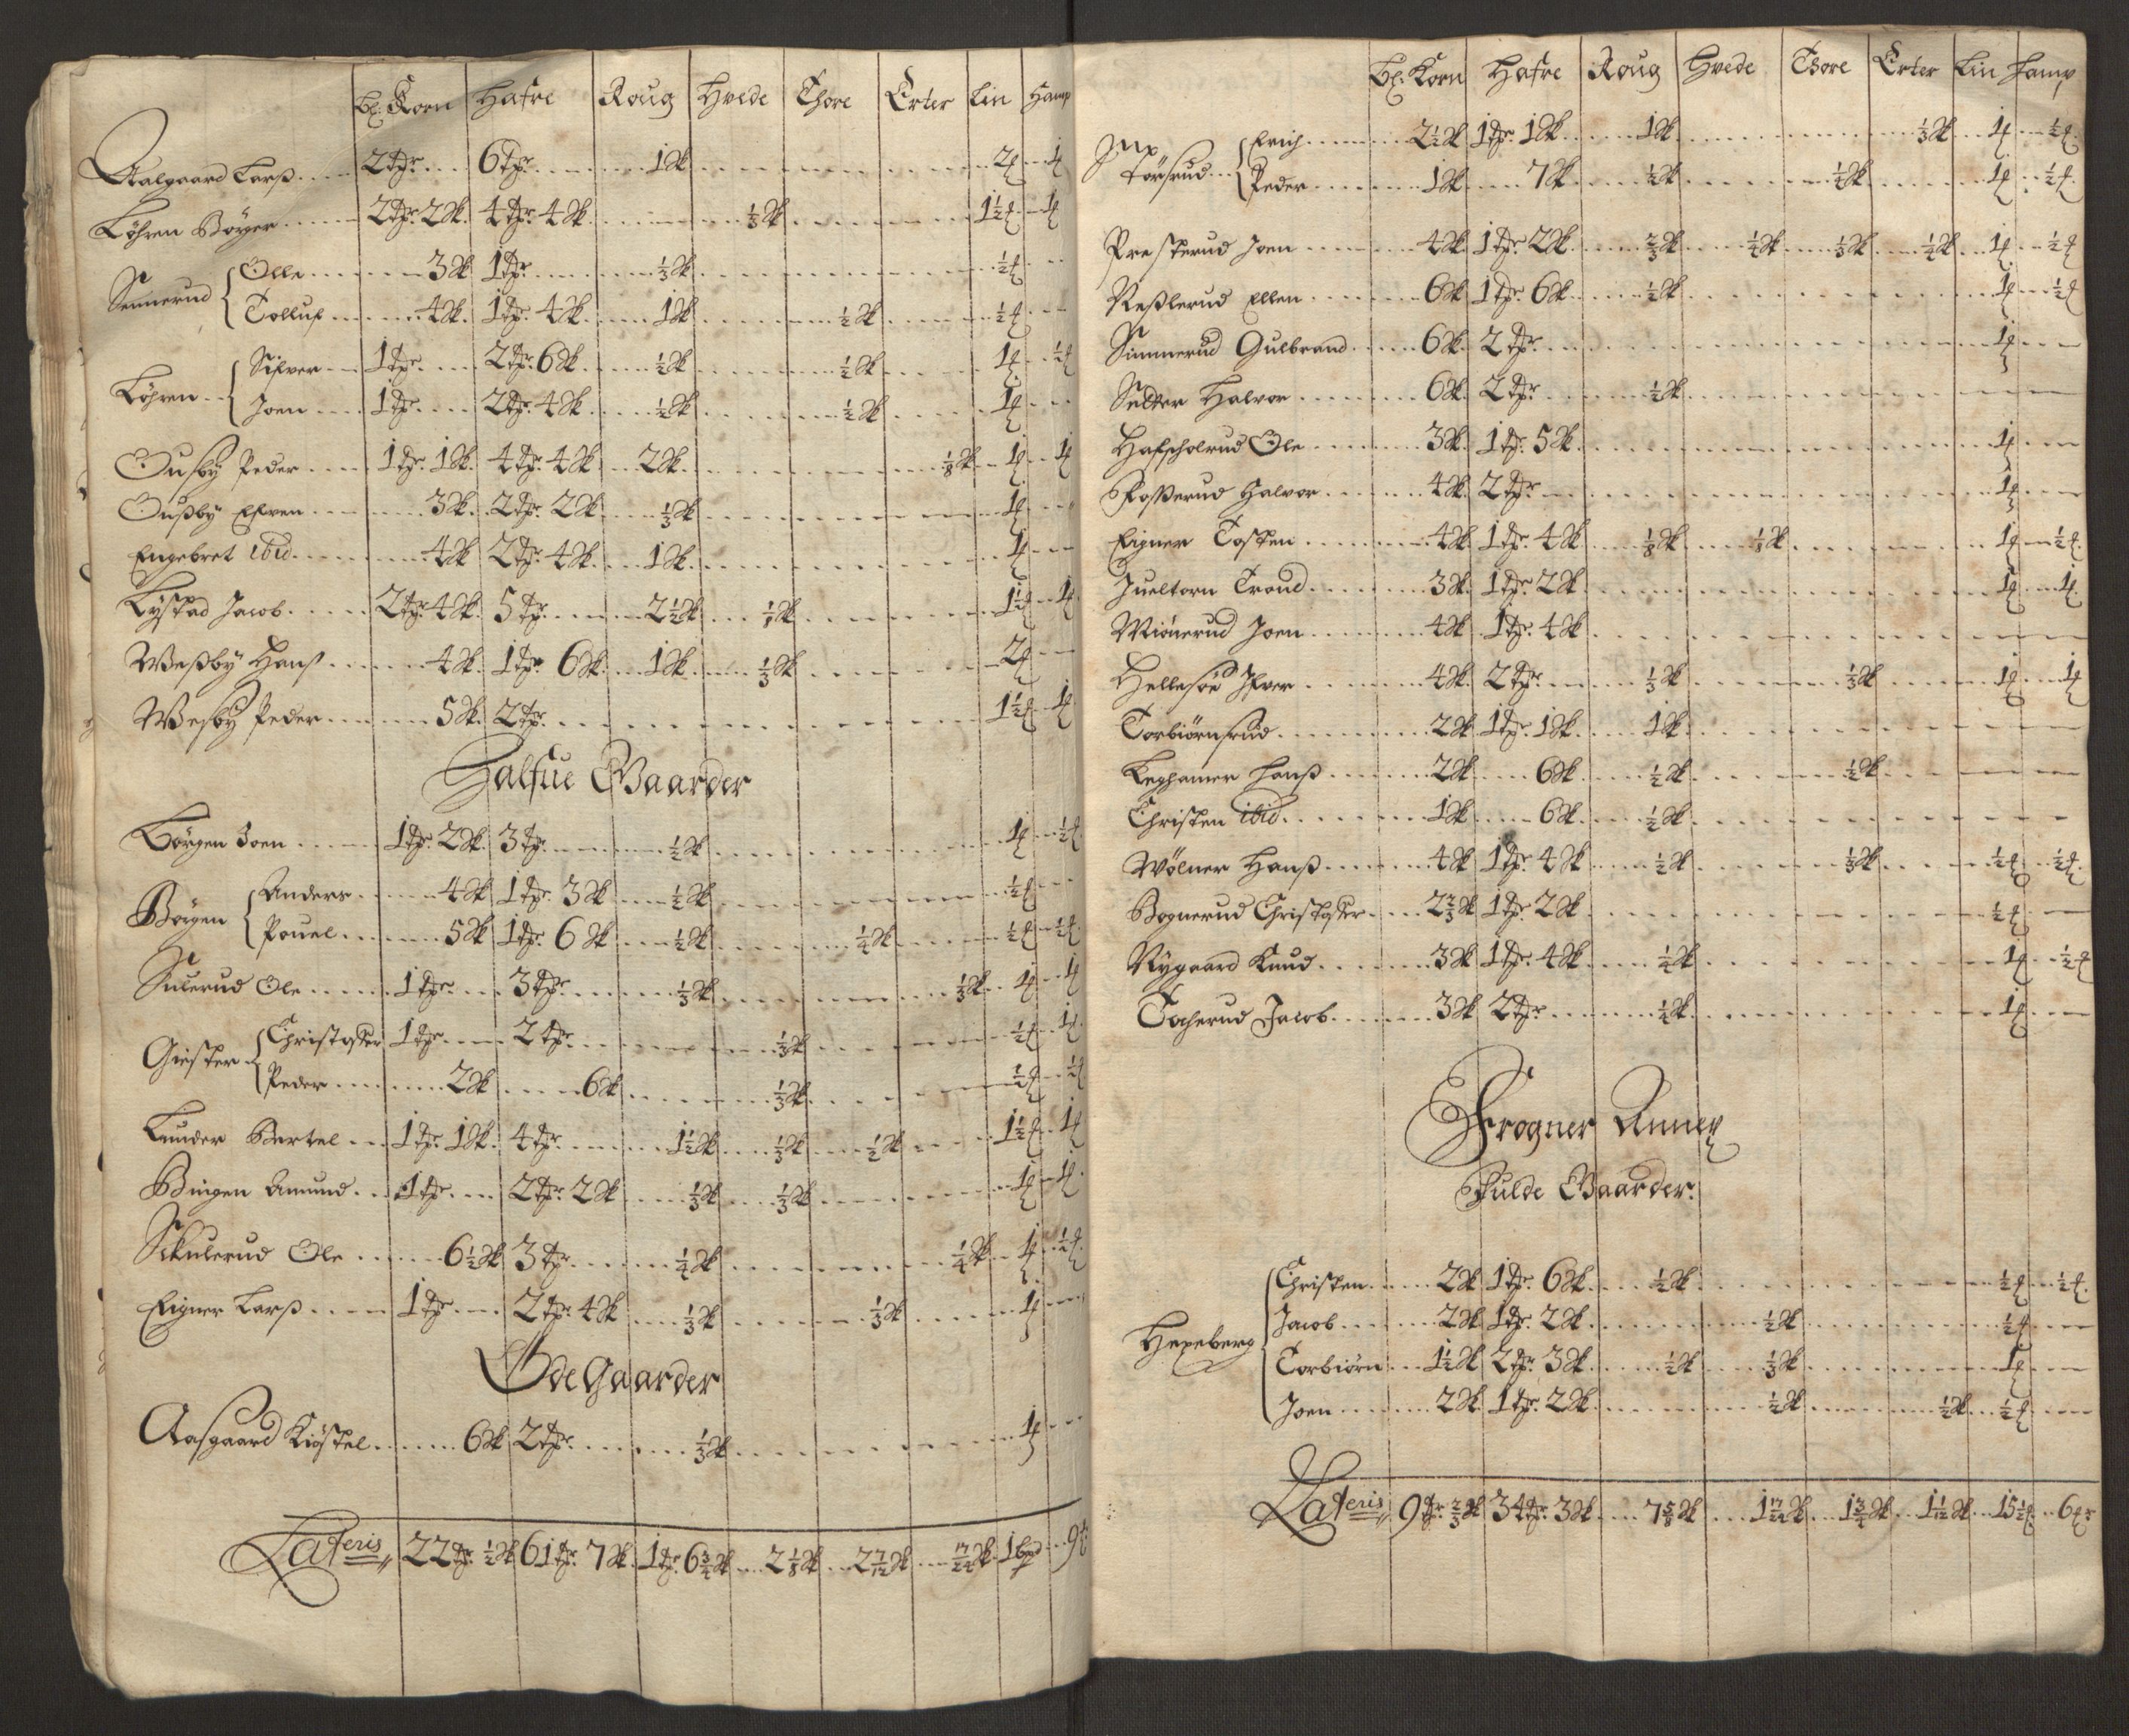 Bl: Korn Hafre Roug Hvede Thore Erter Lin Hamp
Aalgaard Larß 2 tdr 6 tdr 1 Sk 2 ℔ 1 ℔
Løhren Børger 2 tdr 2 Sk 4 tdr 4 Sk 1/3 Sk 1 1/2 ℔ 1 ℔
Sennerud Olle 3 Sk 1 tdr 1/3 Sk 1/2 ℔
Tolluf 4 Sk 1 tdr 4 Sk 1 Sk 1/2 Sk 1/2 ℔
Løhren Sifver 1 tdr 2 tdr 6 Sk 1/2 Sk 1/2 Sk 1 ℔ 1/2 ℔
Joen 1 tdr 2 tdr 4 Sk 1/2 Sk 1/2 Sk 1 ℔
Ousby Peder 1 tdr 1 Sk 4 tdr 4 Sk 2 Sk 1/8 Sk 1 ℔ 1 ℔
Oußby Efven 3 Sk 2 tdr 2 Sk 1/3 Sk 1 ℔
Engebret ibid 4 Sk 2 tdr 4 Sk 1 Sk 1 ℔
Lystad Jacob 2 tdr 4 Sk 5 tdr 2 1/2 Sk 1/8 Sk 1 1/2 ℔ 1 ℔
Weßby Hanß 4 Sk 1 tdr 6 Sk 1 Sk 1/3 Sk 2 ℔
Wesby Peder 5 Sk 2 tdr 1 1/2 ℔ 1 ℔
Halfue Gaarder
Børgen Joen 1 tdr 2 Sk 3 tdr 1/2 Sk 1 ℔ 1/2 ℔
Børgen Anders 4 Sk 1 tdr 3 Sk 1/2 Sk 1/2 ℔
Pouel 5 Sk 1 tdr 6 Sk 1/2 Sk 1/4 Sk 1/2 ℔ 1/2 ℔
Sulerud Ole 1 tdr 3 tdr 1/3 Sk 1/3 Sk 1 ℔ 1 ℔
Giester Christoffer 1 tdr 2 tdr 1/3 Sk 1/2 ℔ 1 ℔
Peder 2 Sk 6 Sk 1/3 Sk 1/2 ℔ 1/2 ℔
Lunder Bertel 1 tdr 1 Sk 4 tdr 1 1/2 Sk 1/3 Sk 1/2 Sk 1 1/2 ℔ 1 ℔
Bingen Amund 1 tdr 2 tdr 2 Sk 1/3 Sk 1/3 Sk 1 ℔ 1 ℔
Skulerud Ole 6 1/2 Sk 3 tdr 1/4 Sk 1/4 Sk 1 ℔ 1/2 ℔
Eigner Larß 1 tdr 2 tdr 4 Sk 1/3 Sk 1/3 Sk 1 ℔
Øde Gaarder
Aasgaard Kiøstel 6 Sk 2 tdr 1/3 Sk 1 ℔
Lateris 22 tdr 1/2 Sk 61 tdr 7 Sk 1 tdr 6 3/4 Sk 2 1/8 Sk 2 7/12 Sk 17/24 Sk 1 bpd 9 ℔
Bl: Korn Hafre Roug Hvede Thore Erter Lin Hamp
Tørsrud Erich 2 1/2 Sk 1 tdr 1 Sk 1 Sk 1/3 Sk 1 ℔ 1/2 ℔
Peder 1 Sk 7 Sk 1/2 Sk 1/2 Sk 1 ℔ 1/2 ℔
Presterud Joen 4 Sk 1 tdr 2 Sk 2/3 Sk 1/4 Sk 1/3 Sk 1/4 Sk 1 ℔ 1/2 ℔
Neßlerud Ellen 6 Sk 1 tdr 6 Sk 1/2 Sk 1 ℔ 1/2 ℔
Simmerud Gulbrand 6 Sk 2 tdr 1 ℔
Selter Halvor 6 Sk 2 tdr 1/2 Sk
Hafscholrud Ole 3 Sk 1 tdr 5 Sk 1 ℔
Foßerud Halvor 4 Sk 2 tdr 1 ℔
Eigner Tosten 4 Sk 1 tdr 4 Sk 1/8 Sk 1/8 Sk 1 ℔ 1/2 ℔
Jueltorn Trond 3 Sk 1 tdr 2 Sk 1 ℔ 1 ℔
Miønerud Joen 4 Sk 1 tdr 4 Sk
Hellesøe Ifver 4 Sk 2 tdr 1/3 Sk 1/3 Sk 1 ℔ 1 ℔
Torbiørnsrud 2 Sk 1 tdr 1 Sk 1 Sk
Leghamer Hanß 2 Sk 6 Sk 1/2 Sk 1/2 Sk
Christen ibid 1 Sk 6 Sk 1/2 Sk
Wølner Hanß 4 Sk 1 tdr 4 Sk 1/2 Sk 1/3 Sk 1/2 ℔ 1/2 ℔
Bognerud Christoffer 2 2/3 Sk 1 tdr 2 Sk 1/2 ℔
Nygaard Knud 3 Sk 1 tdr 4 Sk 1/4 Sk 1 ℔ 1/2 ℔
Tocherud Jacob 3 Sk 2 tdr 1/4 Sk 1 ℔
Frogner Annex
Fulde Gaarder
Hexeberg Christen 2 Sk 1 tdr 6 Sk 1/2 Sk 1/2 ℔ 1/2 ℔
Jacob 2 Sk 1 tdr 2 Sk 1/2 Sk 1/2 ℔
Torbiørn 1 1/2 Sk 2 tdr 3 Sk 1/2 Sk 1/3 Sk 1 ℔
Joen 2 Sk 1 tdr 2 Sk 1/2 Sk 1/2 Sk 1/2 ℔
Lateris 9 tdr 2/3 Sk 34 tdr 3 Sk 7 5/8 Sk 1 17/24 Sk 1 3/4 Sk 1 1/12 Sk 15 1/2 ℔ 6 ℔